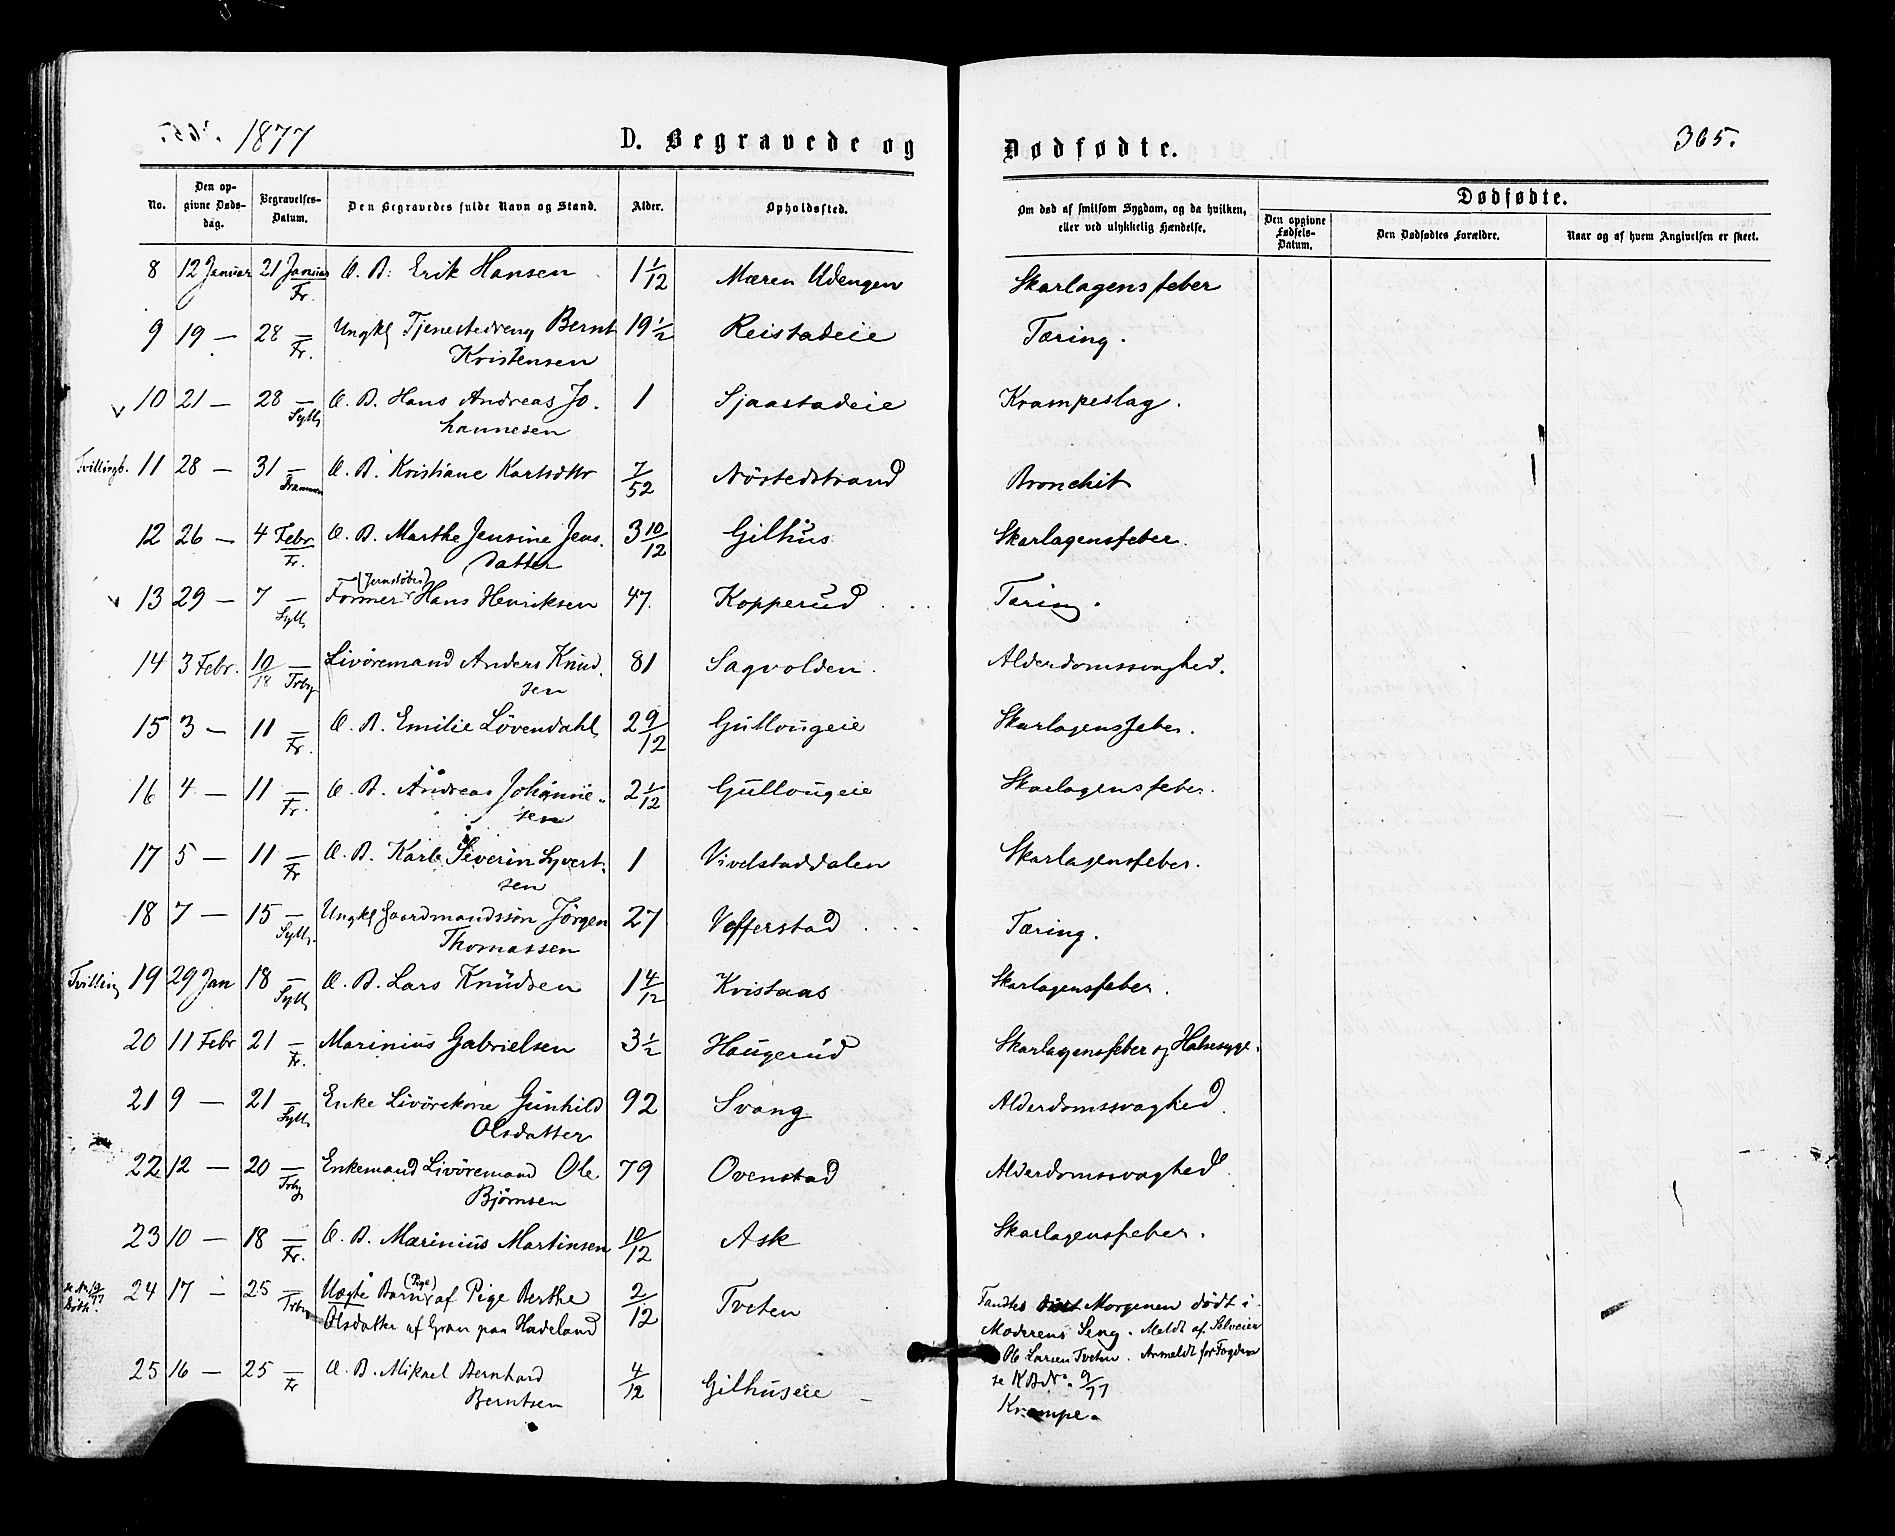 1877 D. Begravede og Dødfødte. 365.
No. Den opgivne Dødsdag. Begravelses-Datum. Den Begravedes fulde Navn og Stand. Alder. Opholdssted. Om død af smitsom Sygdom, og da hvilken, eller ved ulykkelig Hændelse. Dødfødte.
Den opgivne Fødsels-Datum. Den Dødfødtes Forældre. Naar og af hvem Angivelsen er skeet.
8 12 Januar 21 Januar Fr. Æ. B. Erik Hansen 1 1/12 Mæren Udengen Skarlagensfeber
9 19 — 28 — Fr. Ungkl Tjenestedreng Bernt 19 1/2 Reistadeie Tæring.
Kristensen
v 10 21 — 28 — Sylli Æ. B. Hans Andreas Jo- 1 Sjaastadeie Krampeslag.
hannesen
Tvillingb. 11 28 — 31 — Drammen Æ. B. Kristiane Karlsdttr 7/52 Nöstedstrand Bronchit
12 26 — 4 Febr. Fr. Æ. B. Marthe Jensine Jens- 3 10/12 Gilhus Skarlagensfeber.
datter
(Jernstöber)
v 13 29 — 7 — Sylli Former Hans Henriksen 47. Kopperud Tæring.
14 3 Febr. 10/18 — Trby Livöremand Anders Knud- 81 Sagvolden. Alderdomssvaghed.
sen
15 3 — 11 — Fr. Æ. B. Emilie Lövendahl 2 9/12 Gullougeie Skarlagensfeber.
16 4 — 11 — Fr. Æ. B. Andreas Johanne- 2 1/12 Gullougeie Skarlagensfeber.
sen
17 5 — 11 — Fr Æ. B. Karl Severin Syvert- 1 Vivelstaddalen Skarlagensfeber.
sen
18 7 — 15 — Sylli. Ungkl Gaardmandssön Jörgen 27 Vefferstad Tæring.
Thomassen
Tvilling 19 29 Jan 18 — Sylli Æ. B. Lars Knudsen 1 4/12 Kvistaas Skarlagensfeber.
20 11 Febr 21 — Fr. Marinius Gabrielsen 3 1/2 Haugerud Skarlagensfeber og Halsesyge.
21 9 — 21 — Sylli Enke Livörekone Gunhild 92 Svang Alderdomssvaghed.
Olsdatter
22 12 — 20 — Trby Enkemand Livöremand Ole 79 Ovenstad Alderdomssvaghed.
Björnsen
23 10 — 18 — Fr. Æ. B. Marinius Martinsen 10/12 Ask Skarlagensfeber.
24 17 — 25 — Trby Uægte Barn (Pige) af Pige Berthe 2/12 Tveten Fandtes Morgenen dödt i
Olsdatter af Gran paa Hadeland Moderens Seng. Meldt af Selveier
Ole Larsen Tveten. Anmeldt for Fogden
se KB No. 9/77
25 16 — 25 — Fr Æ. B. Mikael Bernhard 4/12 Gilhuseie Krampe.
Berntsen